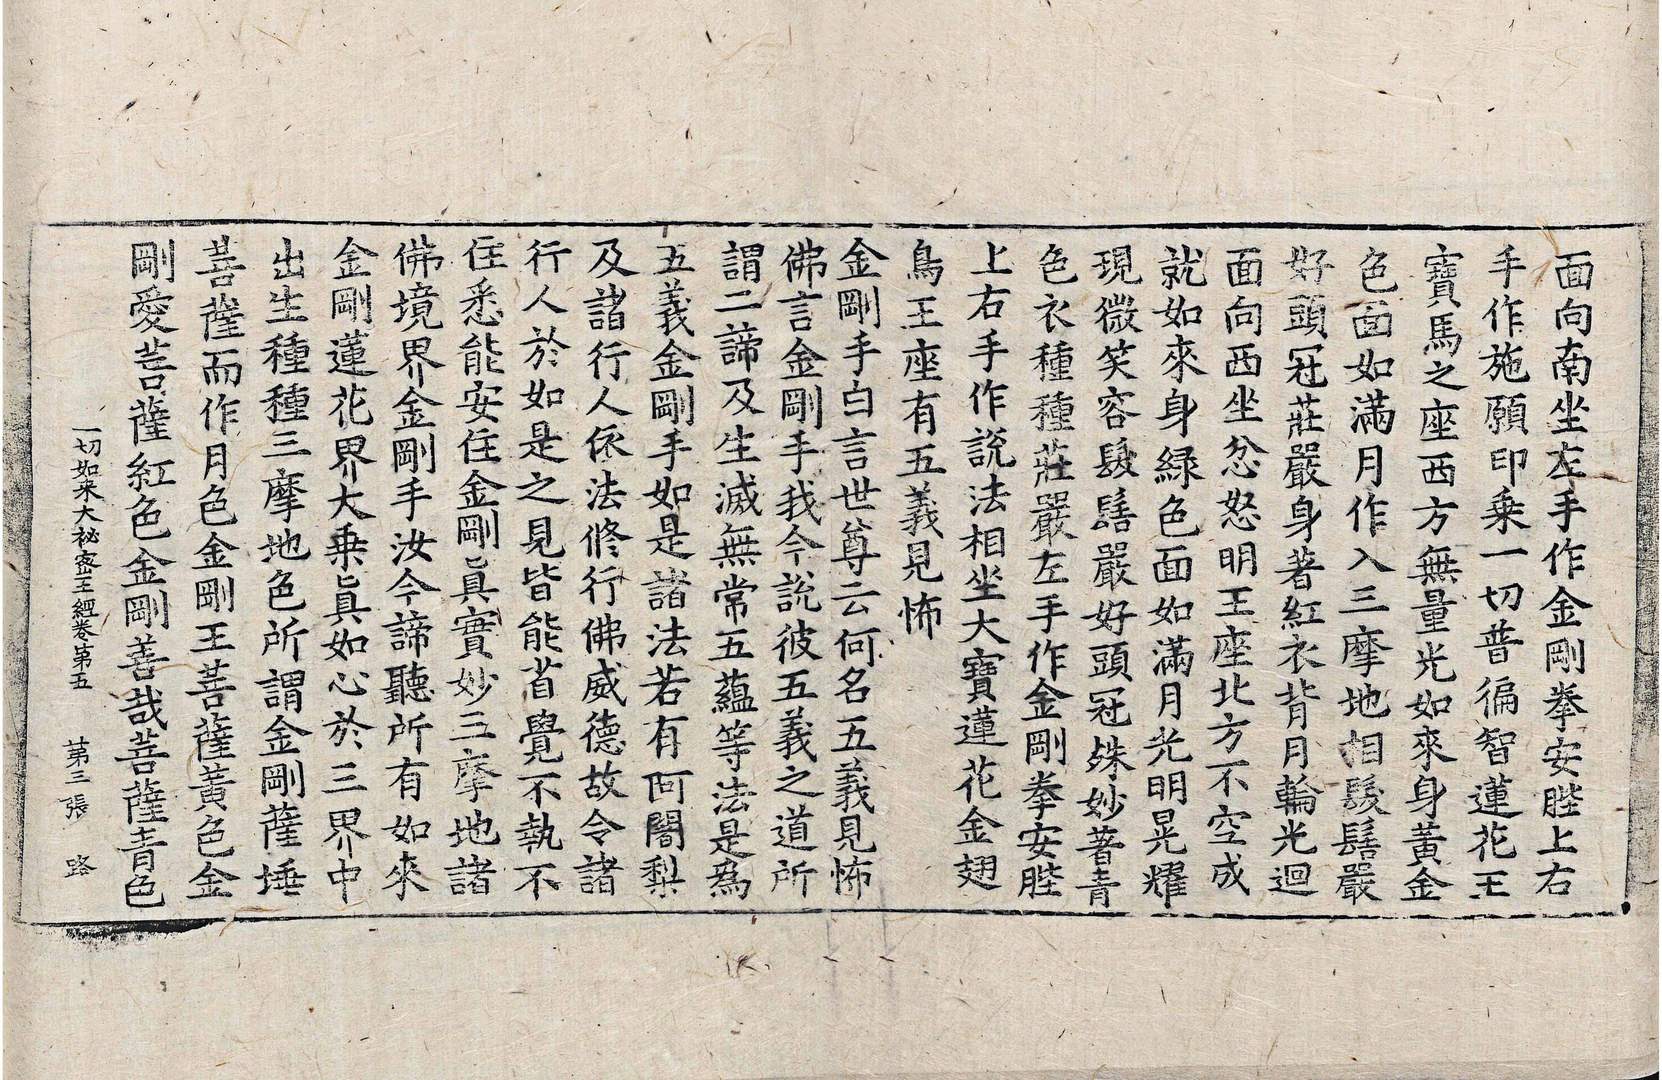 面向南坐左手作金剛拳安䏶上右
手作施願印乗一切普徧智蓮花王
寶馬之座西方無量光如來身黃金
色面如滿月作入三摩地相髮髻嚴
好頭冠莊嚴身著紅衣背月輪光迴
面向西坐忿怒明王座北方不空成
就如來身緑色面如滿月光明晃耀
現微笑容髮髻嚴好頭冠殊妙著青
色衣種種莊嚴左手作金剛拳安䏶
上右手作說法相坐大寶蓮花金翅
鳥王座有五義見怖
金剛手白言世尊云何名五義見怖
佛言金剛手我今説彼五義之道所
謂二諦及生滅無常五蘊等法是為
五義金剛手如是諸法若有阿闍梨
及諸行人依法修行佛威德故令諸
行人於如是之見皆能省覺不執不
住悉能安住金剛真實妙三摩地諸
佛境界金剛手汝今諦聽所有如來
金剛蓮花界大乗真如心於三界中
出生種種三摩地色所謂金剛薩埵
菩薩而作月色金剛王菩薩黃色金
剛愛菩薩紅色金剛善哉菩薩青色
一切如来大秘密王經卷第五 第三張 路